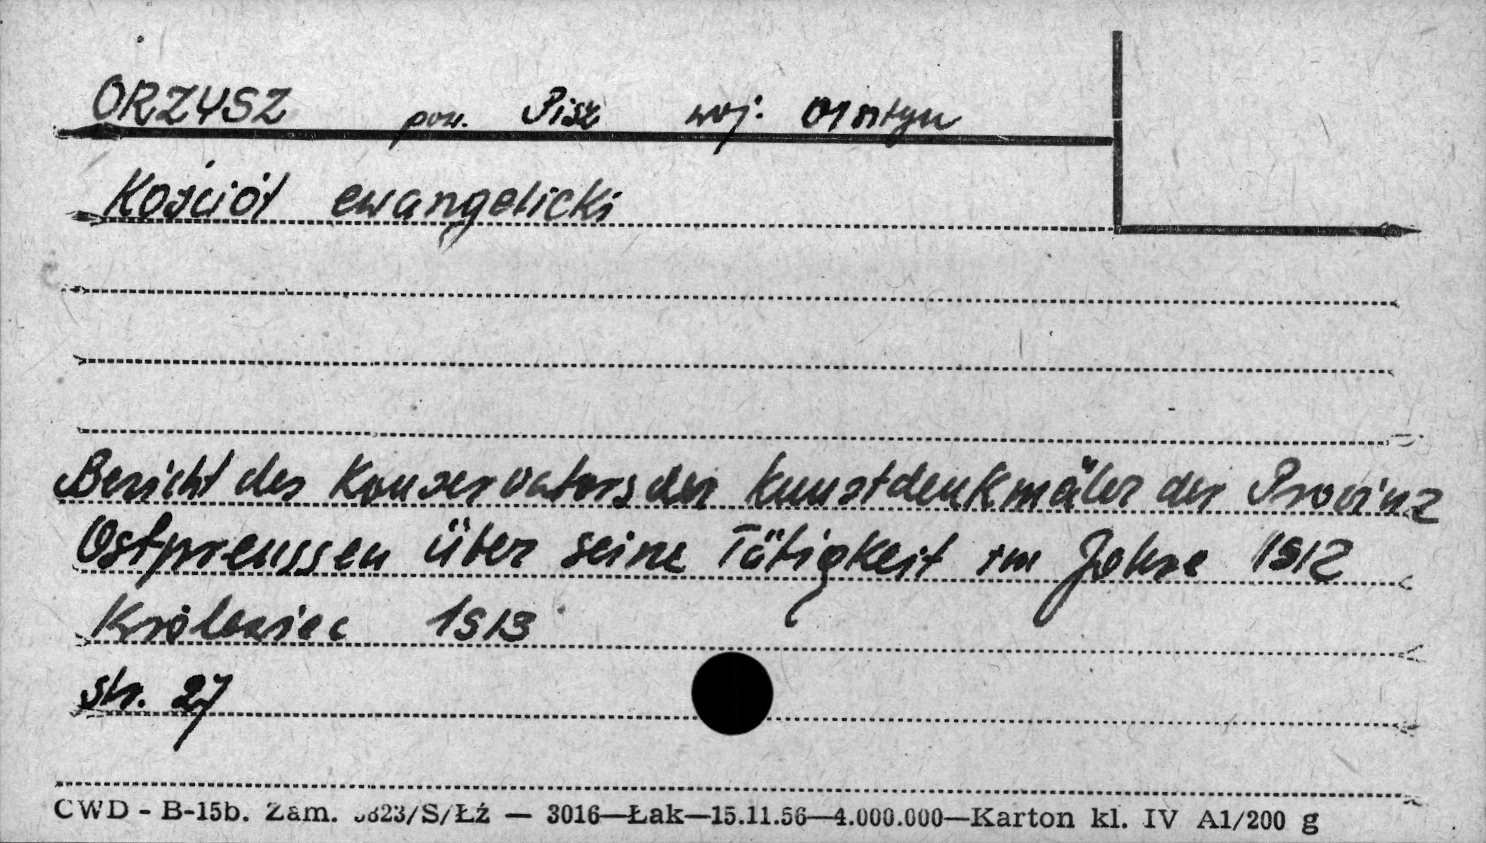 ORZYSZ pow. Pisz woj. Olsztyn
Kościół ewangelicki
Bericht des Konservators der Kunstdenkmäler der Provinz
Ostpreussen über seine Tätigkeit im Jahre 1912
Królewiec 1913
str. 27
CWD - B-15b. Zam. 3823/S/Łź — 3016—Łak—15.11.56—4.000.000—Karton kl. IV A1/200 g